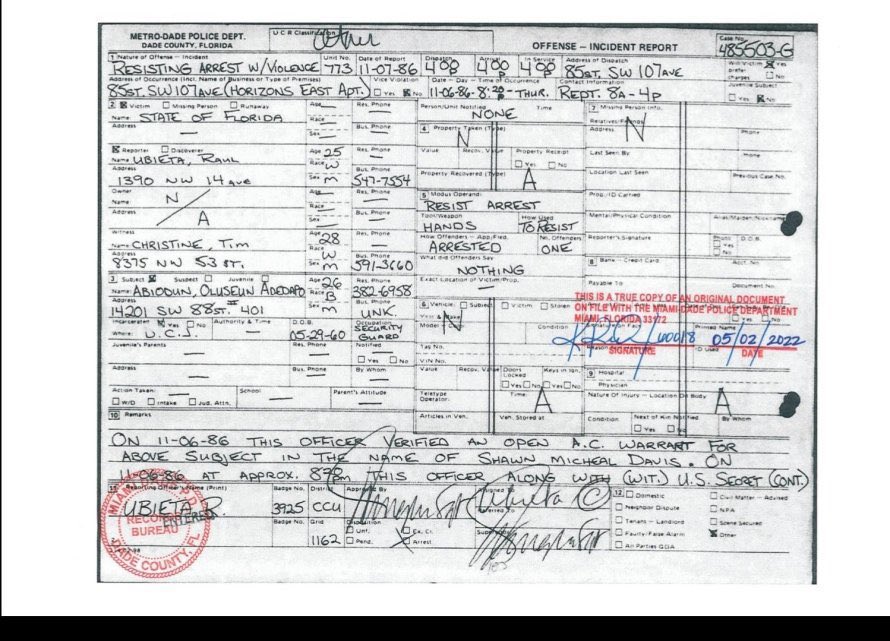 METRO-DADE POLICE DEPT.
DADE COUNTY, FLORIDA
U C R Classification
Other
OFFENSE – INCIDENT REPORT
Case No.
485503-G
1 Nature of Offense – Incident
RESISTING ARREST W/VIOLENCE
Unit No.
773
Date of Report
11-07-86
Dispatch
408
Arrival
408
In Service
408
Address of Dispatch
85 ST. SW 107 AVE
Address of Occurrence (Incl. Name of Business or Type of Premises)
85 ST. SW 107 AVE (HORIZONS EAST APT.)
Vice Violation
Yes No
Date – Day – Time of Occurrence
11-06-86 - 8:20P - THUR.
Contact Information
REPT. 8A - 4P
Juvenile Subj.
Yes No
2 Victim Missing Person Runaway
Name STATE OF FLORIDA
Address
Age
Race
Sex
Res. Phone
Bus. Phone
Person/Unit Notified
NONE
Time
7 Missing Person Info.
Relatives/Friends
N
4 Property Taken (Type)
N
Value
Recov. Value
Property Receipt
Yes No
Property Recovered (Type)
A
Last Seen By
Location Last Seen
Previous Case No.
Reporter Discoverer
Name UBIETA, RAUL
Address
1390 NW 14 AVE
Age 25
Race W
Sex M
547-7554
Owner
Name N
Address A
5 Modus Operandi
RESIST ARREST
Tool/Weapon
HANDS
How Used
TO RESIST
How Offenders – App/Fled
ARRESTED
No. Offenders
ONE
What did Offenders Say
NOTHING
Exact Location of Victim/Prop.
Prop./ID Carried
Mental/Physical Condition
Alias/Maiden/Nickname
Reporter's Signature
D.O.B.
8 Bank – Credit Card
Acct. No.
Payable To
Document No.
Witness
Name CHRISTINE, TIM
Address
8375 NW 53 ST.
Age 28
Race W
Sex M
591-3660
3 Subject Suspect Juvenile
Name ABIODUN, OLUSEUN ADEDAPO
Address
14201 SW 88 ST. # 401
Age 26
Race B
Sex M
382-6958
UNK.
Incarcerated Yes No
Where: D.C.J.
Authority & Time
D.O.B.
05-29-60
Occupation
SECURITY GUARD
6 Vehicle: Subject Victim Stolen
N
Model
Condition
Tag No.
V.I.N No.
THIS IS A TRUE COPY OF AN ORIGINAL DOCUMENT
ON FILE WITH THE MIAMI-DADE POLICE DEPARTMENT
MIAMI, FLORIDA 33172
05/02/2022
SIGNATURE
DATE
Juvenile's Parents
Res. Phone
Notified
Yes No
Address
Bus. Phone
By Whom
Value
Recov. Value
Doors Locked
Yes No
Keys in Ign.
Yes No
9 Hospital
Physician
Action Taken:
W/D Intake Jud. Attn.
School
Parent's Attitude
Teletype Operator:
Time:
A
Nature Of Injury – Location On Body
A
10 Remarks
Articles in Veh.
Veh. Stored at
Condition
Next of Kin Notified
Yes No
By Whom
ON 11-06-86 THIS OFFICER VERIFIED AN OPEN A.C. WARRANT FOR
ABOVE SUBJECT IN THE NAME OF SHAWN MICHEAL DAVIS. ON
11-06-86 AT APPROX. 820pm THIS OFFICER ALONG WITH (WIT.) U.S. SECRET (CONT.)
11 Reporting Officer's Name (Print)
UBIETA, R.
Badge No.
3925
District
CCU
Approved By
Badge No.
Grid
1162
Disposition
Unf. Ex. Cl.
Pend. Arrest
Assigned To
Referred To
12 Domestic
Neighbor Dispute
Tenants – Landlord
Faulty/False Alarm
All Parties GOA
Civil Matter – Advised
N.P.A.
Scene Secured
Other
RECORDS
BUREAU
ENTERED
DADE COUNTY, FL